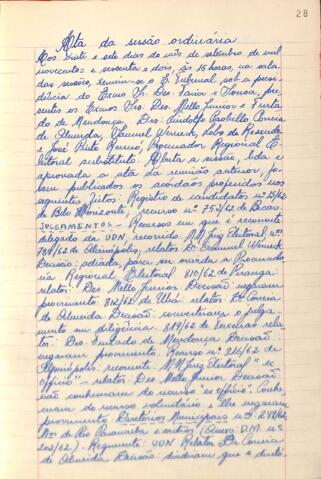 28
Ata da sessão ordinária
Aos vinte e sete dias do mês de setembro de mil
novecentos e sessenta e dois, às 15 horas, na sala
das sessões, reuniu-se o E. Tribunal sob a presi-
dência do Exmo Sr. Des. Faria e Sousa, pre-
sentes os Exmos Srs. Des. Mello Junior e Furta-
do de Mendonça, Drs.: Cândido Martins Correia
de Almeida, Manuel Werneck, Lobo de Resende
e José Pinto Renó, Procurador Regional E-
leitoral substituto. Aberta a sessão, lida e
aprovada a ata da reunião anterior, fo-
ram publicados os acórdãos proferidos nos
seguintes feitos: Registro de candidatos nº 15/62
de Belo Horizonte; recurso nº 752/62 de Bicas.
JULGAMENTOS - Recursos em que é recorrente
delegado da UDN, recorrido MM Juiz Eleitoral nºs
784/62 de relator: Dr. Manuel Werneck
Decisão: adiada, para ser ouvida a Procurado-
ria Regional Eleitoral 810/62 de Piranga
relator: Des. Mello Junior Decisão: negaram
provimento. 812/62 de Ubá: relator Dr Correia
de Almeida Decisão: converteram o julga-
mento em diligência 819/62 de Teixeiras rela-
tor: Des. Furtado de Mendonça Decisão:
negaram provimento. Recurso nº 816/62 de
recorrente MM Juiz Eleitoral "ex
officio" relator: Des Mello Junior Decisão:
não conheceram do recurso "ex officio". Conhe-
ceram do recurso voluntário e lhe negaram
provimento Diretórios Municipais nº 249/62
de Rio Paranaíba e outros (Anexo: D.M. nº
202/62) - Requerente: UDN Relator Dr Correia
de Almeida Decisão: